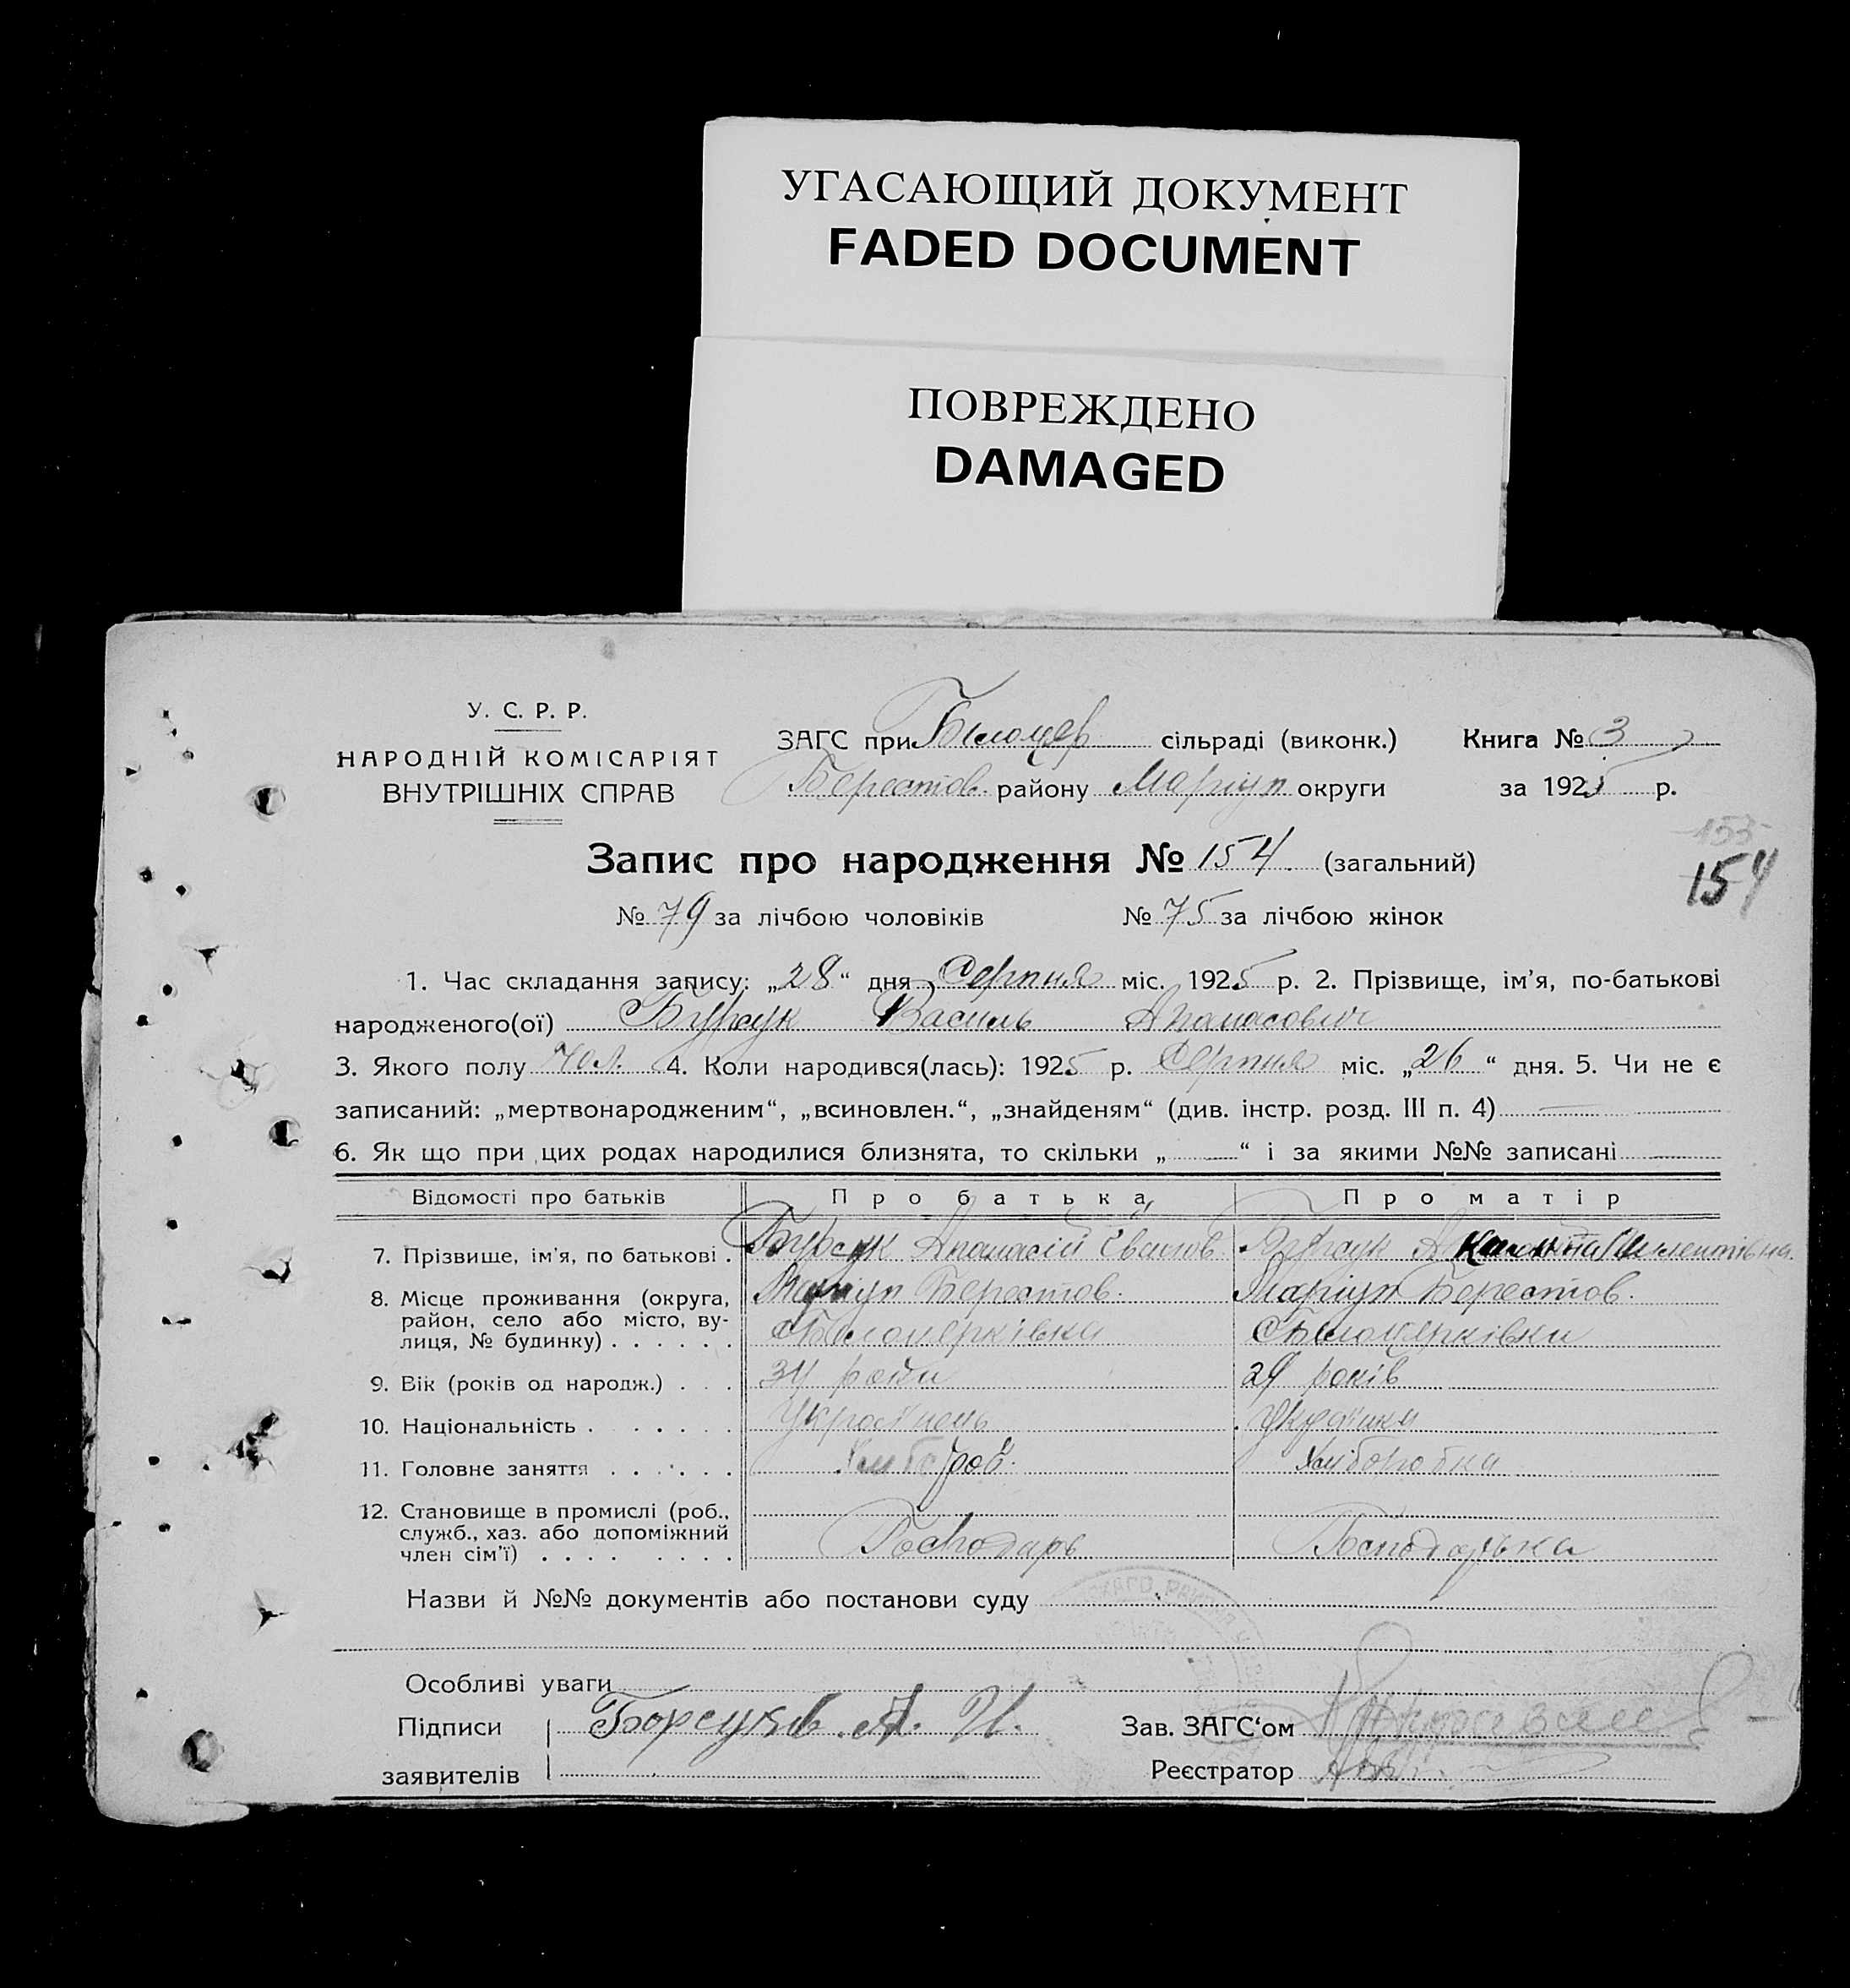 УГАСАЮЩИЙ ДОКУМЕНТ
FADED DOCUMENT
ПОВРЕЖДЕНО
DAMAGED
У. С. Р. Р.
НАРОДНІЙ КОМІСАРІЯТ
ВНУТРІШНІХ СПРАВ
ЗАГС при Билоцер сільраді (виконк.) Книга № 3
Берестов. району Маріуп округи за 1925 р.
153
Запис про народження № 154 (загальний)
154
№ 79 за лічбою чоловіків № 75 за лічбою жінок
1. Час складання запису: „28“ дня Серпня міс. 1925 р. 2. Прізвище, ім'я, по-батькові
народженого(ої) Бурсук Василь Апанасович
3. Якого полу чол. 4. Коли народився(лась): 1925 р. Серпня міс. „26“ дня. 5. Чи не є
записаний: „мертвонародженим“, „всиновлен.“, „знайденям“ (див. інстр. розд. III п. 4) —
6. Як що при цих родах народилися близнята, то скільки „—“ і за якими №№ записані —
Відомості про батьків Про батька Про матір
7. Прізвище, ім'я, по батькові . Бурсук Апанасій Іванов. Бурсук
8. Місце проживання (округа, Маріуп Берестов. Маріуп Берестов.
район, село або місто, ву-
лиця, № будинку) . . . . . . С Билоцерківки С Билоцерківки
9. Вік (років од народж.) . . . 34 роки 29 років
10. Національність . . . . . . Украинець Украинка
11. Головне заняття . . . . . . Хлібороб. Хліборобка
12. Становище в промислі (роб.,
служб., хаз. або допоміжний
член сім'ї) . . . . . . . . Господарь Господарька
Назви й №№ документів або постанови суду
Особливі уваги
Підписи Борсуков. А. И. Зав. ЗАГС'ом
заявителів Реєстратор